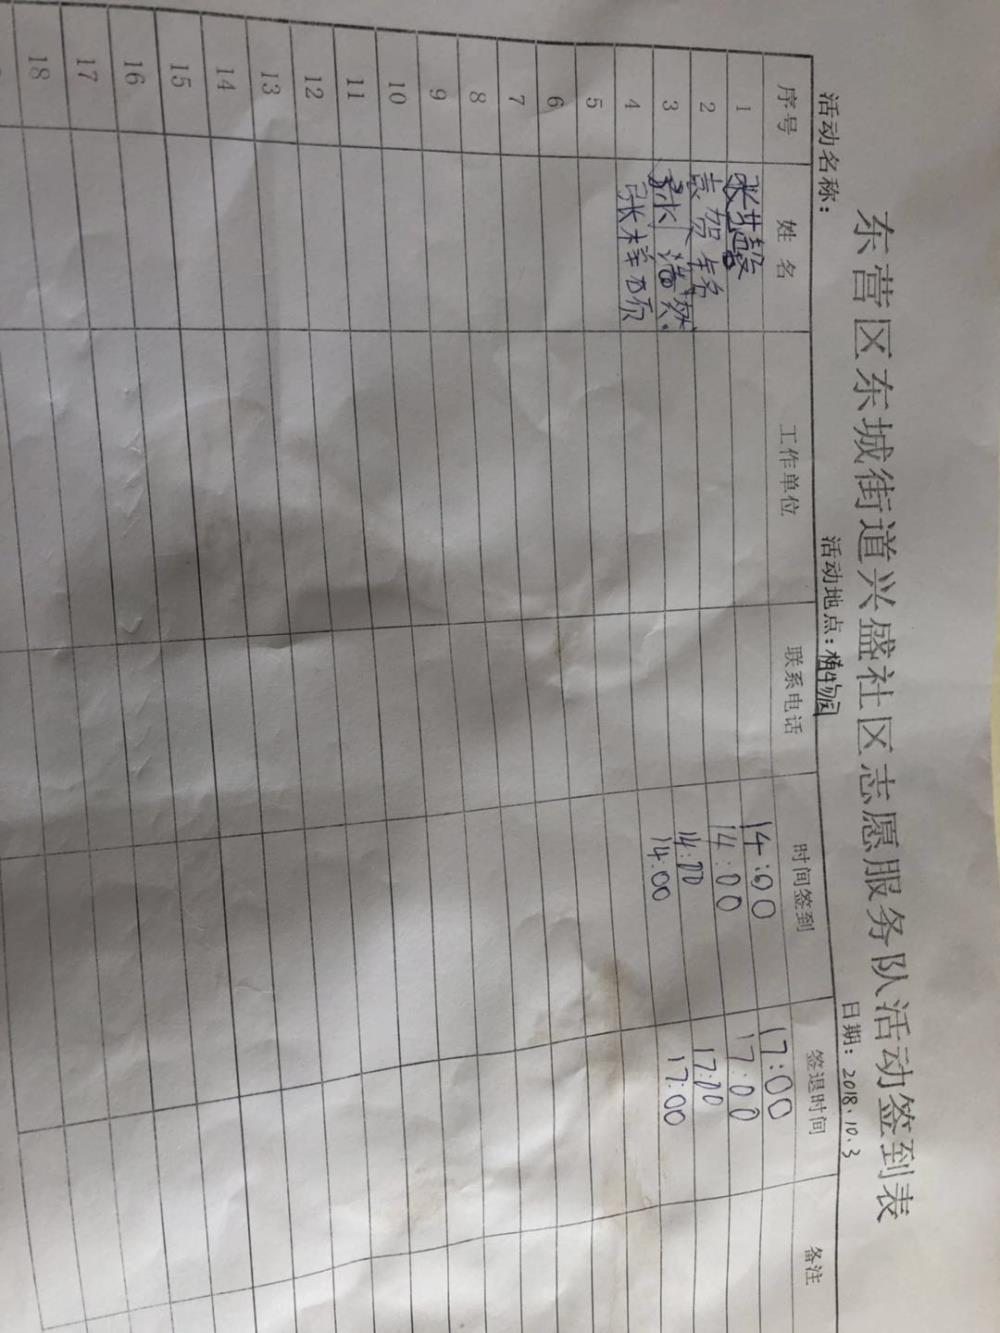 东营区东城街道兴盛社区志愿服务队活动签到表
活动名称: 活动地点:植物园 日期:2018.10.3
序号 姓名 工作单位 联系电话 时间签到 签退时间 备注
1 张艺馨 14:00 17:00
2 袁贺铭 14:00 17:00
3 张潇然 14:00 17:00
4 张梓硕 14:00 17:00
5
6
7
8
9
10
11
12
13
14
15
16
17
18